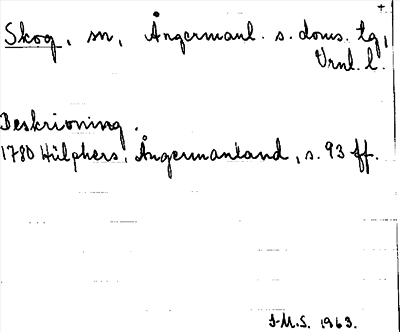 +
Skog, sn, Ångermanl. s. doms. tg,
Vrnl. l.
Beskrivning.
1780 Hülphers, Ångermanland, s. 93 ff.
I-M.S. 1963.